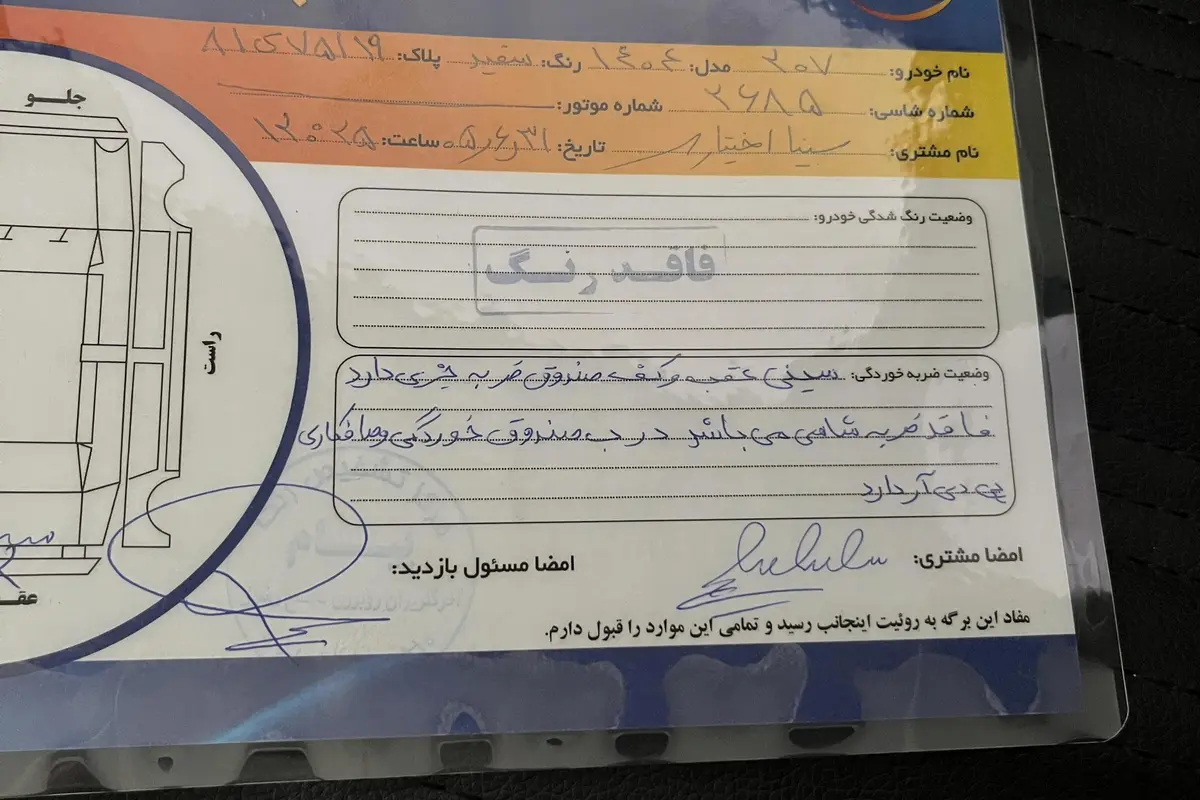 نام خودرو: ۲۰۷ مدل: ۱۴۰۴ رنگ: سفید پلاک: ۸۱ ی ۷۵۱ ۱۹
شماره شاسی: ۲۶۸۵ شماره موتور:
نام مشتری: سینا اختیاری تاریخ: ۵/۶/۳۱ ساعت: ۱۲:۲۵
جلو
وضعیت رنگ شدگی خودرو:
فاقد رنگ
راست
وضعیت ضربه خوردگی: سینی عقب و کف صندوق ضربه جزئی دارد
فاقد ضربه شاسی می باشد درب صندوق خوردگی و صافکاری
پی دی آر دارد
امضا مشتری:
امضا مسئول بازدید:
مفاد این برگه به روئیت اینجانب رسید و تمامی این موارد را قبول دارم.